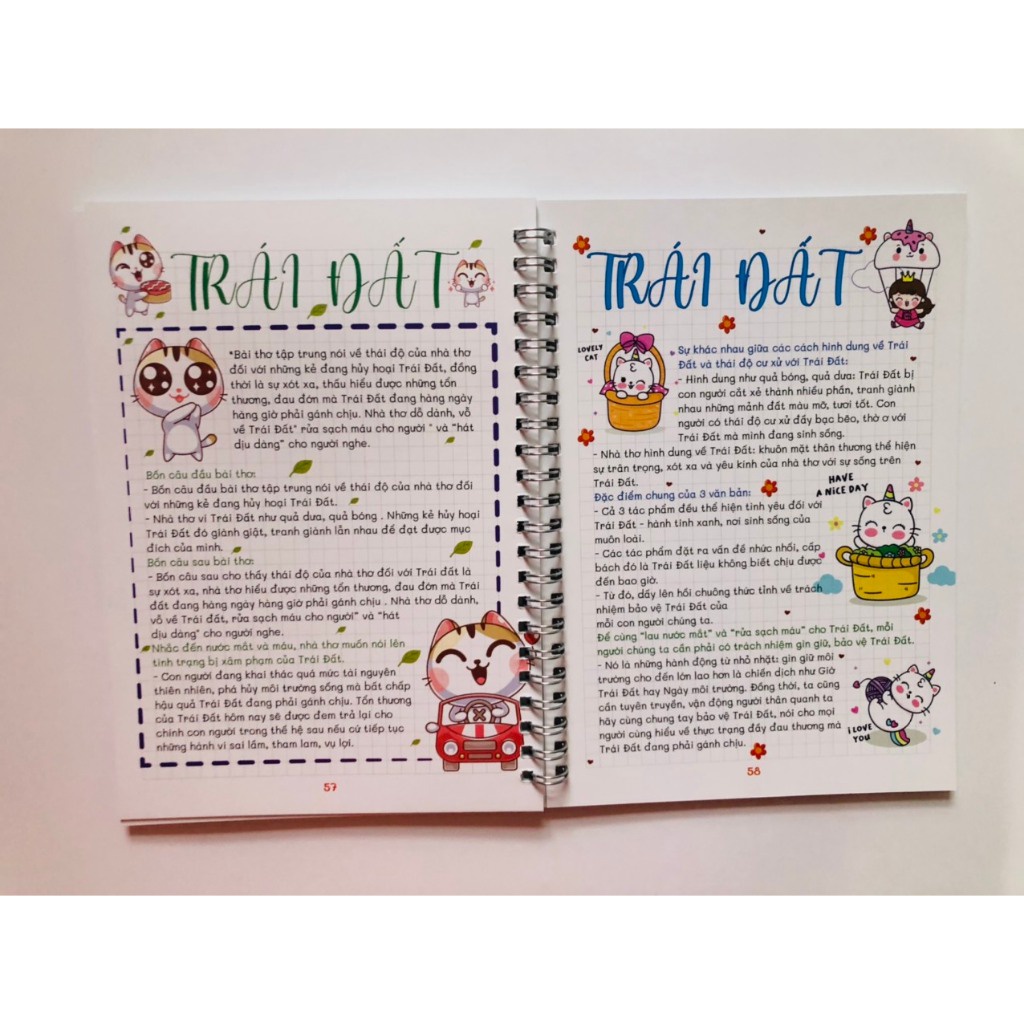 TRÁI ĐẤT
*Bài thơ tập trung nói về thái độ của nhà thơ
đối với những kẻ đang hủy hoại Trái Đất, đồng
thời là sự xót xa, thấu hiểu được những tổn
thương, đau đớn mà Trái Đất đang hàng ngày
hàng giờ phải gánh chịu. Nhà thơ dỗ dành, vỗ
về Trái Đất" rửa sạch máu cho người " và "hát
dịu dàng" cho người nghe.
Bốn câu đầu bài thơ:
- Bốn câu đầu bài thơ tập trung nói về thái độ của nhà thơ đối
với những kẻ đang hủy hoại Trái Đất.
- Nhà thơ ví Trái Đất như quả dưa, quả bóng . Những kẻ hủy hoại
Trái Đất đó giành giật, tranh giành lẫn nhau để đạt được mục
đích của mình.
Bốn câu sau bài thơ:
- Bốn câu sau cho thấy thái độ của nhà thơ đối với Trái đất là
sự xót xa, nhà thơ hiểu được những tổn thương, đau đớn mà Trái
đất đang hàng ngày hàng giờ phải gánh chịu . Nhà thơ dỗ dành,
vỗ về Trái đất, rửa sạch máu cho người" và "hát
dịu dàng" cho người nghe.
Nhắc đến nước mắt và máu, nhà thơ muốn nói lên
tình trạng bị xâm phạm của Trái Đất.
- Con người đang khai thác quá mức tài nguyên
thiên nhiên, phá hủy môi trường sống mà bất chấp
hậu quả Trái Đất đang phải gánh chịu. Tổn thương
của Trái Đất hôm nay sẽ được đem trả lại cho
chính con người trong thế hệ sau nếu cứ tiếp tục
những hành vi sai lầm, tham lam, vụ lợi.
57
TRÁI ĐẤT
LOVELY
CAT
Sự khác nhau giữa các cách hình dung về Trái
Đất và thái độ cư xử với Trái Đất:
- Hình dung như quả bóng, quả dưa: Trái Đất bị
con người cắt xẻ thành nhiều phần, tranh giành
nhau những mảnh đất màu mỡ, tươi tốt. Con
người có thái độ cư xử đầy bạc bẽo, thờ ơ với
Trái Đất mà mình đang sinh sống.
- Nhà thơ hình dung về Trái Đất: khuôn mặt thân thương thể hiện
sự trân trọng, xót xa và yêu kính của nhà thơ với sự sống trên
Trái Đất.
HAVE
A NICE DAY
Đặc điểm chung của 3 văn bản:
- Cả 3 tác phẩm đều thể hiện tình yêu đối với
Trái Đất - hành tinh xanh, nơi sinh sống của
muôn loài.
- Các tác phẩm đặt ra vấn đề nhức nhối, cấp
bách đó là Trái Đất liệu không biết chịu được
đến bao giờ.
- Từ đó, dấy lên hồi chuông thức tỉnh về trách
nhiệm bảo vệ Trái Đất của
mỗi con người chúng ta.
Để cùng "lau nước mắt" và "rửa sạch máu" cho Trái Đất, mỗi
người chúng ta cần phải có trách nhiệm gìn giữ, bảo vệ Trái Đất.
- Nó là những hành động từ nhỏ nhặt: gìn giữ môi
trường cho đến lớn lao hơn là chiến dịch như Giờ
Trái Đất hay Ngày môi trường. Đồng thời, ta cũng
cần tuyên truyền, vận động người thân quanh ta
hãy cùng chung tay bảo vệ Trái Đất, nói cho mọi
người cùng hiểu về thực trạng đầy đau thương mà
Trái Đất đang phải gánh chịu.
I LOVE
YOU
58